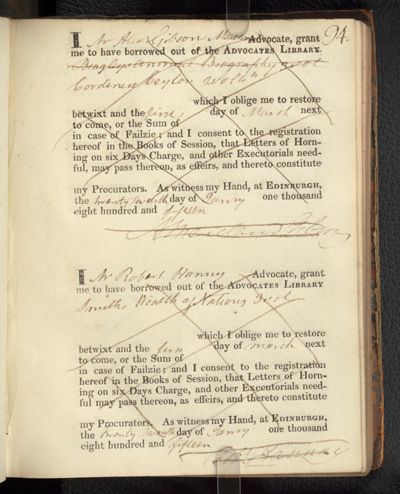 94.
I Mr Alexr Gibson Advocate, grant
me to have borrowed out of the ADVOCATES LIBRARY.
Biography
Cordiners Ceylon 2 vols
which I oblige me to restore
betwixt and the first day of March next
to come, or the Sum of
in case of Failzie; and I consent to the registration
hereof in the Books of Session, that Letters of Horn-
ing on six Days Charge, and other Executorials need-
ful, may pass thereon, as effeirs, and thereto constitute
my Procurators. As witness my Hand, at EDINBURGH,
the twenty day of Janry one thousand
eight hundred and fifteen
I Mr Robert Hannay Advocate, grant
me to have borrowed out of the ADVOCATES LIBRARY
Smiths Wealth of Nations
which I oblige me to restore
betwixt and the first day of March next
to come, or the Sum of
in case of Failzie; and I consent to the registration
hereof in the Books of Session, that Letters of Horn-
ing on six Days Charge, and other Executorials need-
ful may pass thereon, as effeirs, and thereto constitute
my Procurators. As witness my Hand, at EDINBURGH,
the twenty seventh day of Janry one thousand
eight hundred and fifteen